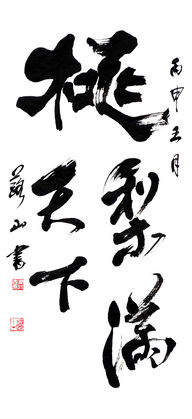 丙申五月
桃梨满
天下
山書